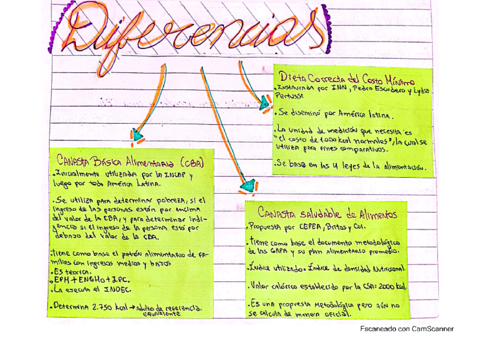 Diferencias
Dieta Correcta del Costo Mínimo
Instaurada por INN, Pedro Escudero y Lydia
• Se diseminó por América latina.
• La unidad de medición que necesita es
"el costo de 1000 kcal normales", la cual se
utiliza para fines comparativos.
• Se basa en las 4 leyes de la alimentación.
CANASTA BÁSICA ALIMENTARIA (CBA)
• Inicialmente utilizada por la
luego por toda América Latina.
• Se utiliza para determinar pobreza, si el
ingreso de las personas están por encima
del valor de la CBA, y para determinar indi-
gencia si el ingreso de la persona está por
debajo del valor de la CBA.
• tiene como base el patrón alimentario de fa-
milias con ingresos medios y bajos
• Es teórica.
• EPH + ENGHo + IPC.
• La ejecuta el INDEC.
• Determina 2.750 kcal → adulto de referencia
equivalente
CANASTA SALUDABLE de Alimentos
• Propuesta por CEPEA, Britos y Col.
• tiene como base el documento metodológico
de las GAPA y su plan alimentario promedio.
• Índice utilizado = Índice de densidad Nutricional
• Valor calórico establecido por la CSA: 2000 kcal
• Es una propuesta metodológica pero aún no
se calcula de manera oficial.
Escaneado con CamScanner